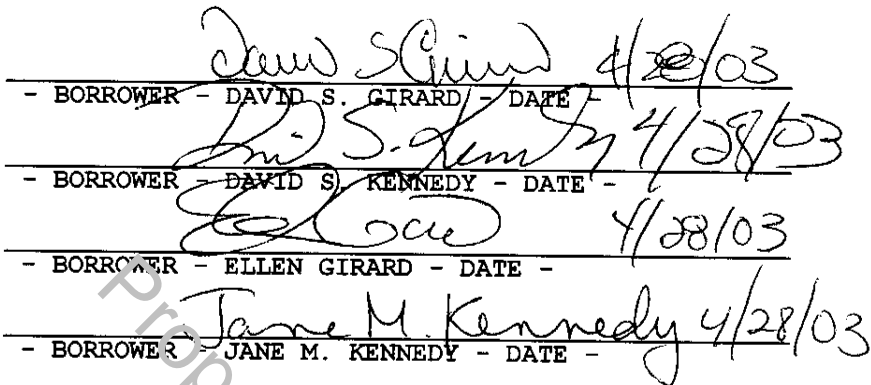 David S Girard 4/28/03
- BORROWER - DAVID S. GIRARD - DATE -
David S. Kennedy 4/28/03
- BORROWER - DAVID S. KENNEDY - DATE -
4/28/03
- BORROWER - ELLEN GIRARD - DATE -
Jane M. Kennedy 4/28/03
- BORROWER - JANE M. KENNEDY - DATE -
Prop